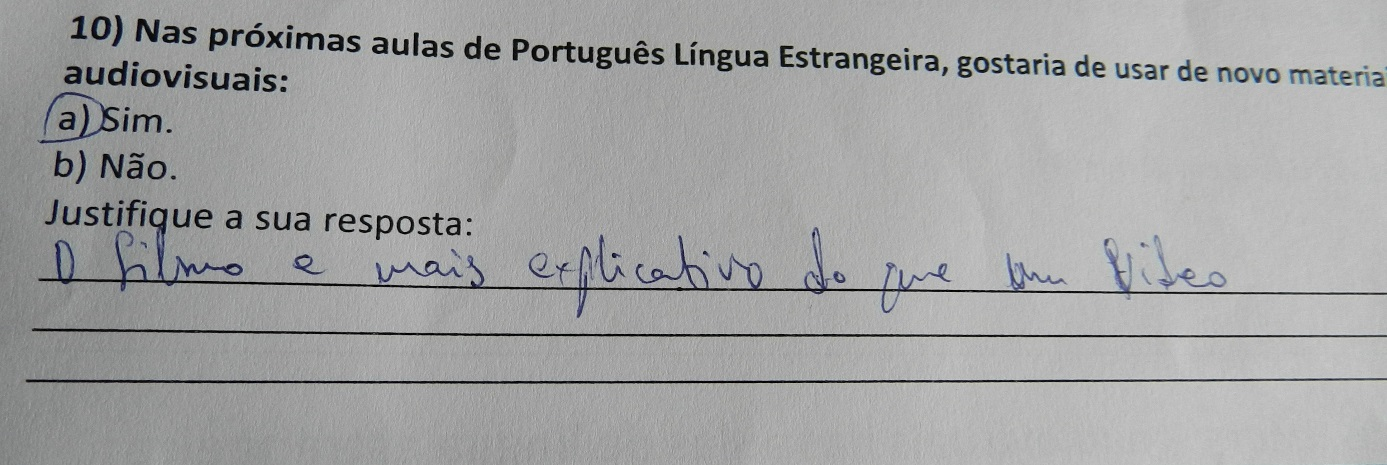 10) Nas próximas aulas de Português Língua Estrangeira, gostaria de usar de novo materia
audiovisuais:
a) Sim.
b) Não.
Justifique a sua resposta:
O filmo e mais explicativo do que um Video